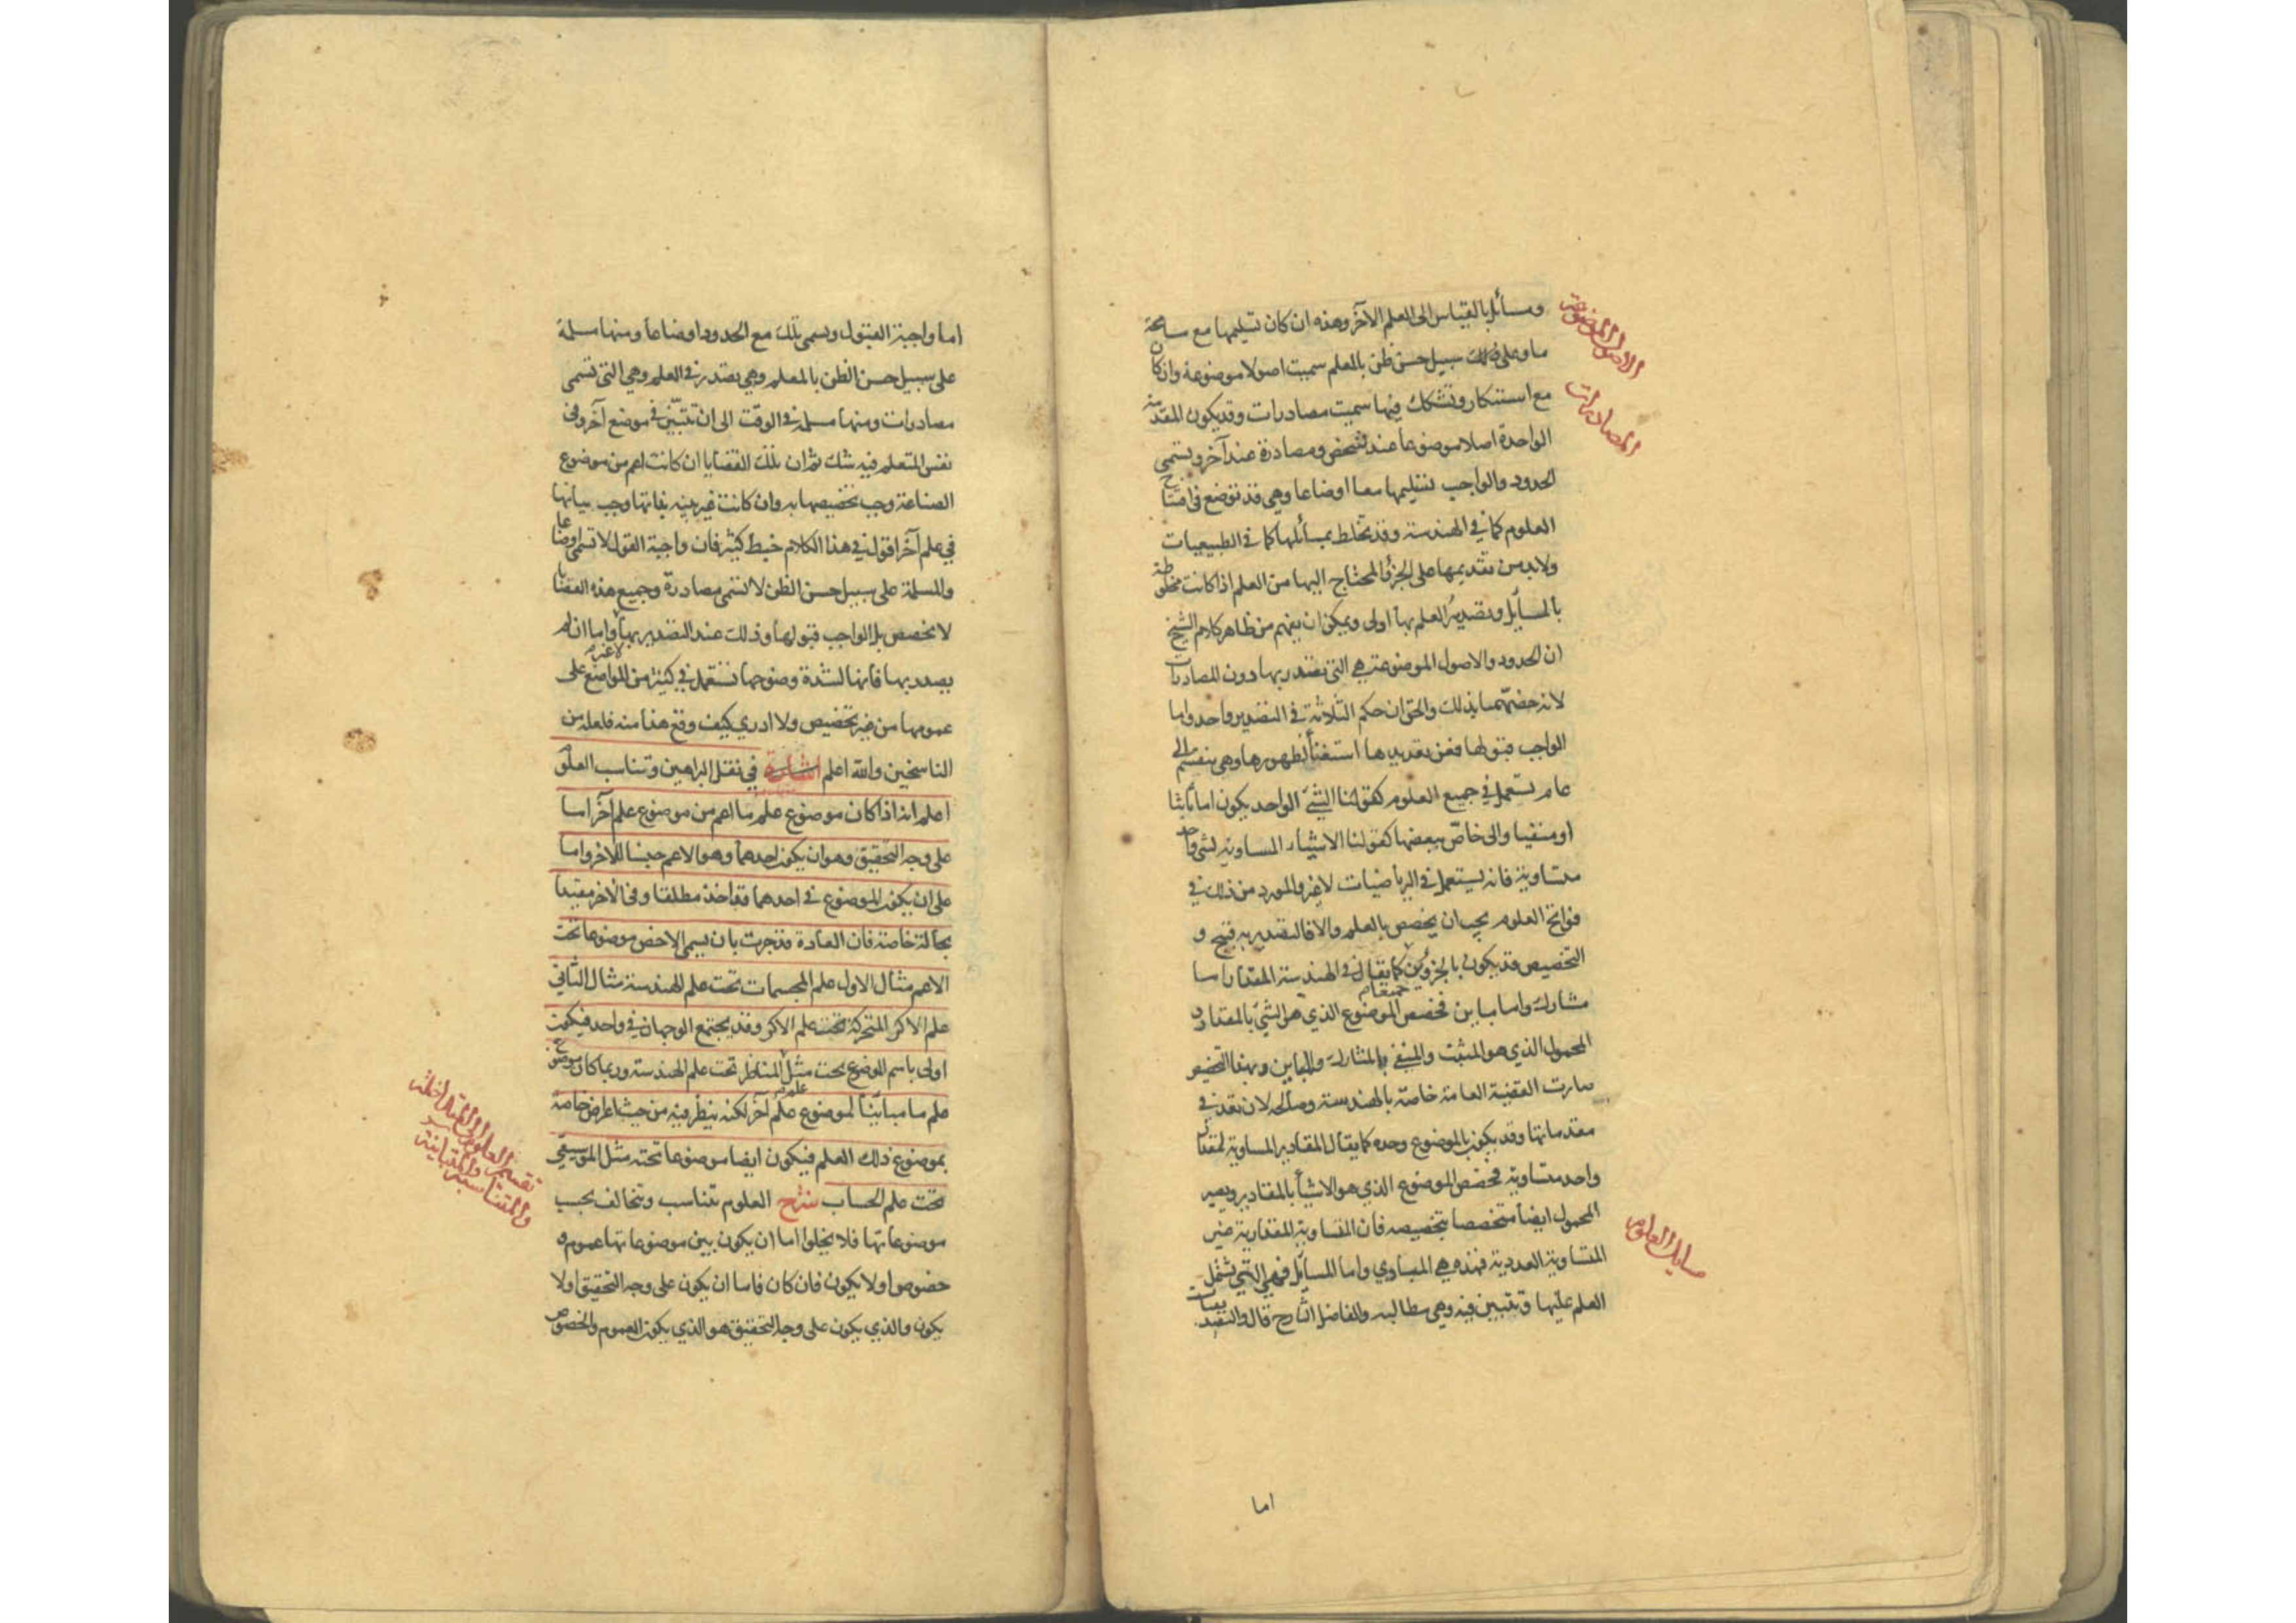 ومسائل بالقياس الى العلم الآخر وهذه ان كان تسليمها مع مسامحة
ما وعلى سبيل حسن ظن بالمعلم سميت اصولا موضوعة وان كان
مع استنكار وتشكك فيها سميت مصادرات وقد يكون المقدمة
الواحدة اصلا موضوعا عند شخص ومصادرة عند آخر وتسمى
الحدود والواجب تسليمها معا اوضاعا وهي قد توضع في افتتاح
العلوم كما في الهندسة وقد تخلط بمسائلها كما في الطبيعيات
ولابد من تقديمها على الجزؤ المحتاج اليها من العلم اذا كانت مخلوطة
بالمسايل وتصدير العلم بها اولى ويمكن ان يفهم من ظاهر كلام الشيخ
ان الحدود والاصول الموضوعة هي التي يصدر بها دون المصادرات
لانه خصهما بذلك والحق ان حكم الثلاثة في التصدير واحد واما
الواجب قبولها فعن تعديدها استغناء لظهورها وهي ينقسم الى
عام يستعمل في جميع العلوم كقولنا الشئ الواحد يكون اما ثابتا
او منفيا والى خاص ببعضها كقولنا الاشياء المساوية لشئ واحد
متساوية فانه يستعمل في الرياضيات لاغير والمورد من ذلك في
فواتح العلوم يجب ان يخصص بالعلم والا فالتصدير به قبيح و
التخصيص قد يكون بالجزوين جميعا كما يقال في الهندسة المقدار اما
مشارك واما مباين فخصص الموضوع الذي هو الشئ بالمقدار و
المحمول الذي هو المثبت والمنفي بالمشارك والمباين وبهذا التخصيص
صارت القضية العامة خاصة بالهندسة وصالحة لان تقع في
مقدماتها وقد يكون بالموضوع وحده كما يقال المقادير المساوية لمقدار
واحد متساوية فخصص الموضوع الذي هو الاشيا بالمقادير ويصير
المحمول ايضا متخصصا بتخصيصه فان المتساوية المقدارية غير
المتساوية العددية فهذه هي المبادي واما المسايل فهي التي يشتمل
العلم عليها وتتبين فيه وهي مطالبه والفاضل الشارح قال والتصديقات
اما
الاصول الموضوعة
المصادرات
مسايل العلوم
اما واجبة القبول ويسمى تلك مع الحدود اوضاعا ومنها مسلمة
على سبيل حسن الظن بالمعلم وهي يصدر في العلم وهي التي تسمى
مصادرات ومنها مسلمة في الوقت الى ان تتبين في موضع آخر وفي
نفس المتعلم فيه شك ثم ان تلك القضايا ان كانت اعم من موضوع
الصناعة وجب تخصيصها به وان كانت غير بينة بذاتها وجب بيانها
في علم آخر اقول في هذا الكلام خبط كثير فان واجبة القول لا تسمى اوضاعا
والمسلمة على سبيل حسن الظن لا تسمى مصادرة وجميع هذه القضايا
لا تخصص بل الواجب قبولها وذلك عند التصدير بها لاغير واما ان لم
يصدر بها فانها لشدة وضوحها تستعمل في كثير من المواضع على
عمومها من غير تخصيص ولا ادري كيف وقع هذا منه فلعله من
الناسخين والله اعلم اشارة في نقل البراهين وتناسب العلوم
اعلم انه اذا كان موضوع علم ما اعم من موضوع علم آخر اما
على وجه التحقيق وهو ان يكون احدهما وهو الاعم جنسا للآخر واما
على ان يكون الموضوع في احدهما قد اخذ مطلقا وفي الآخر مقيدا
بحالة خاصة فان العادة قد جرت بان يسمى الاخص موضوعا تحت
الاعم مثال الاول علم المجسمات تحت علم الهندسة مثال الثاني
علم الاكر المتحركة تحت علم الاكر وقد يجتمع الوجهان في واحد فيكون
اولى باسم الموضوع تحت مثل علم المناظر تحت علم الهندسة وربما كان موضوع
علم ما مباينا لموضوع علم آخر لكنه ينظر فيه من حيث اعراض خاصة
بموضوع ذلك العلم فيكون ايضا موضوعا تحته مثل الموسيقى
تحت علم الحساب شرح العلوم تتناسب وتتخالف بحسب
موضوعاتها فلا يخلوا اما ان يكون بين موضوعاتها عموم و
خصوص او لا يكون فان كان فاما ان يكون على وجه التحقيق او لا
يكون والذي يكون على وجه التحقيق هو الذي يكون العموم والخصوص
تقسيم العلوم الى المتداخلة
والمتناسبة والمتباينة